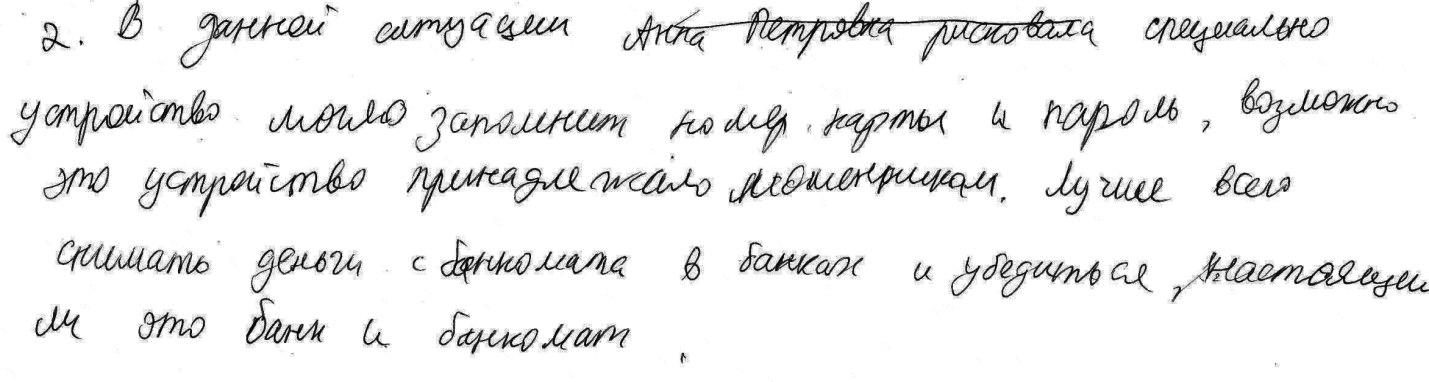 2. В данной ситуации ~~Анна Петровна рисковала~~ специально
устройство могло запомнит номер карты и пароль, возможно
это устройство принадлежало мошенникам. Лучше всего
снимать деньги с банкомата в банках и убедиться, настоящии
ли это банк и банкомат.